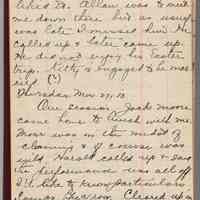 liked Dr. Allan, was to meet
me down there but as usual
was late I missed him. He
called up & later came up.
He did not enjoy his Easter
trip. Kitty is engaged to be mar-
ried (?)
Thursday Mar 27, 13.
One session. Jack Moore
came home to lunch with me.
Moore was in the midst of
cleaning & of course was
wild. Harold called up & said
the performance was all off
I'd like to know particulars
room. Cleared up a